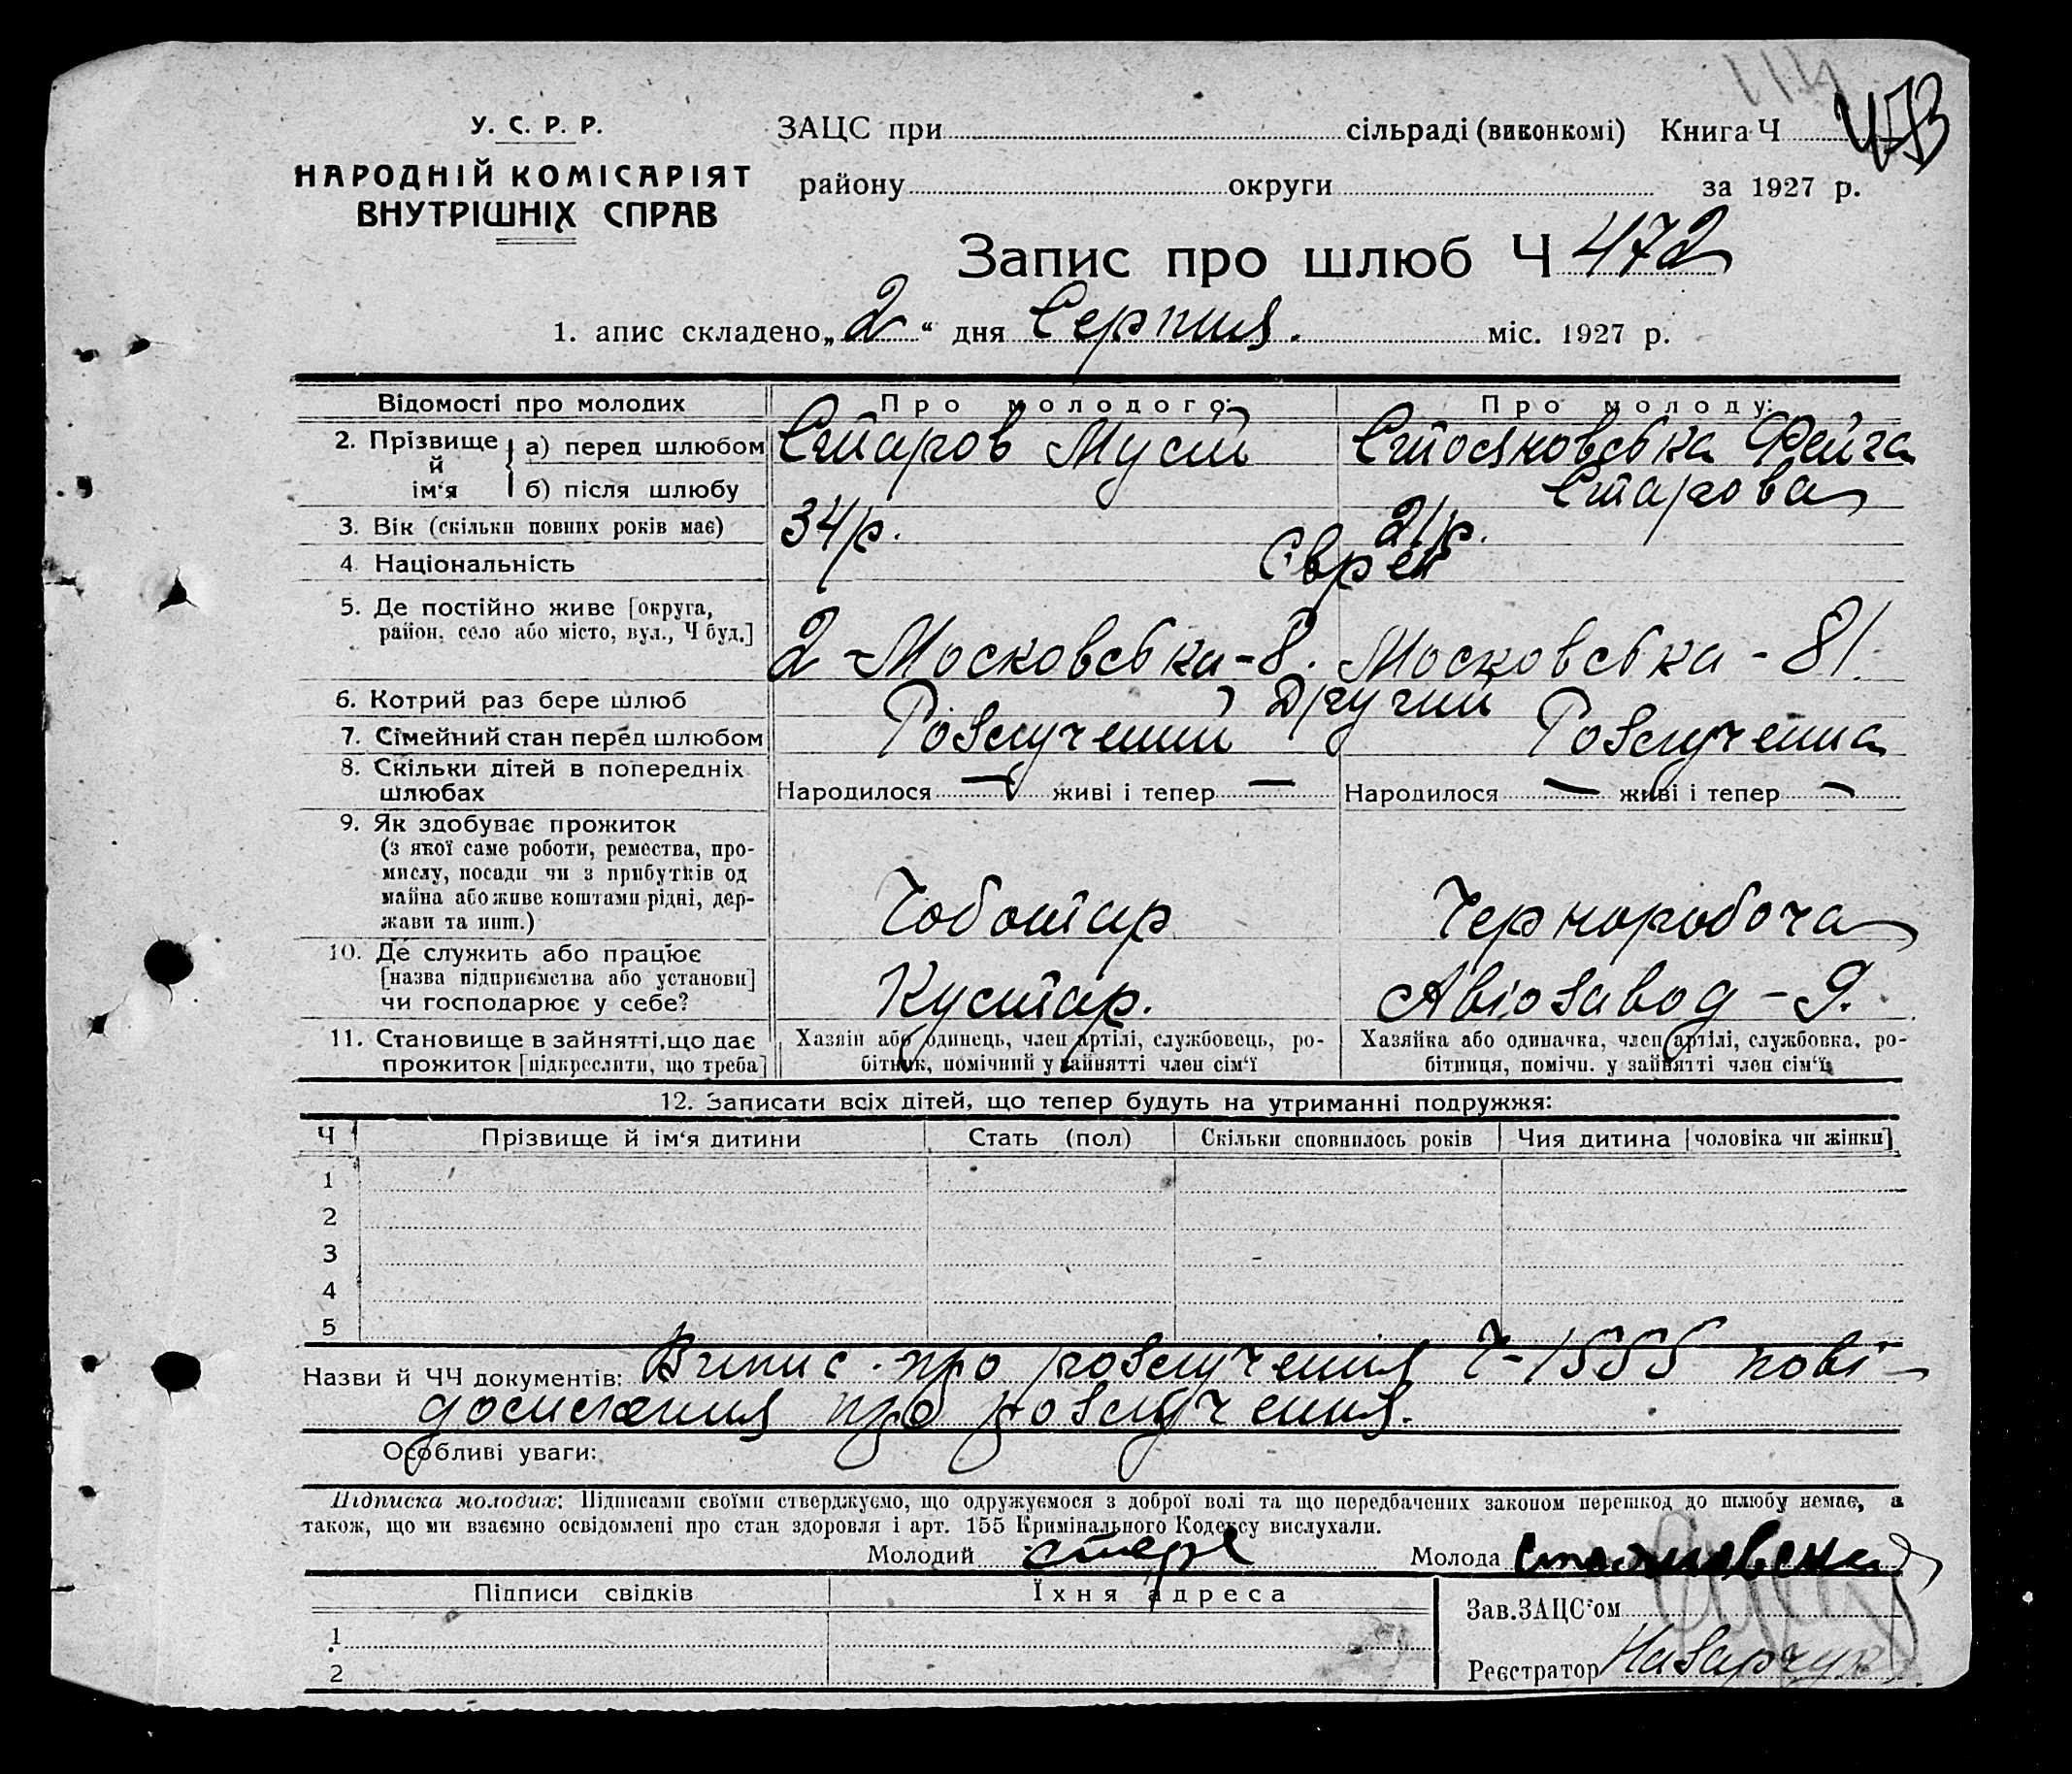 У. С. Р. Р.
НАРОДНІЙ КОМІСАРІЯТ
ВНУТРІШНІХ СПРАВ
ЗАЦС при сільраді (виконкомі) Книга Ч
району округи за 1927 р.
Запис про шлюб Ч 472
1. апис складено „2“ дня Серпня. міс. 1927 р.
Відомості про молодих Про молодого: Про молоду:
2. Прізвище й ім‘я а) перед шлюбом Старов Мусій Стояновська Фейга
б) після шлюбу Старова
3. Вік (скільки повних років має) 34 р. 21 р.
4 Національність Єврей
5. Де постійно живе [округа,
район, село або місто, вул., Ч буд.] 2-Московська-8. Московська-81.
6. Котрий раз бере шлюб Другий
7. Сімейний стан перед шлюбом Розлучений Розлучена
8. Скільки дітей в попередніх
шлюбах Народилося — живі і тепер — Народилося — живі і тепер —
9. Як здобуває прожиток
(з якої саме роботи, ремества, про-
мислу, посади чи з прибутків од
майна або живе коштами рідні, дер-
жави та инш.) Чоботар Чорноробоча
10. Де служить або працює
[назва підприємства або установи]
чи господарює у себе? Кустар. Авіозавод-9.
11. Становище в зайнятті, що дає
прожиток [підкреслити, що треба]
Хазяїн або одинець, член артілі, службовець, ро-
бітник, помічний у зайнятті член сім‘ї
Хазяйка або одиначка, член артілі, службовка, ро-
бітниця, помічн. у зайнятті член сім‘ї
12. Записати всіх дітей, що тепер будуть на утриманні подружжя:
Ч Прізвище й ім‘я дитини Стать (пол) Скільки сповнилось років Чия дитина [чоловіка чи жінки]
1
2
3
4
5
Назви й ЧЧ документів: Випис про розлучення Ч-1555 пові-
домлення про розлучення.
Особливі уваги:
Підписка молодих: Підписами своїми стверджуємо, що одружуємося з доброї волі та що передбачених законом перешкод до шлюбу немає, а
також, що ми взаємно освідомлені про стан здоровля і арт. 155 Кримінального Кодексу вислухали.
Молодий Молода Стояновска
Підписи свідків Їхня адреса
Зав.ЗАЦС‘ом
1
2
Реєстратор Назарчук